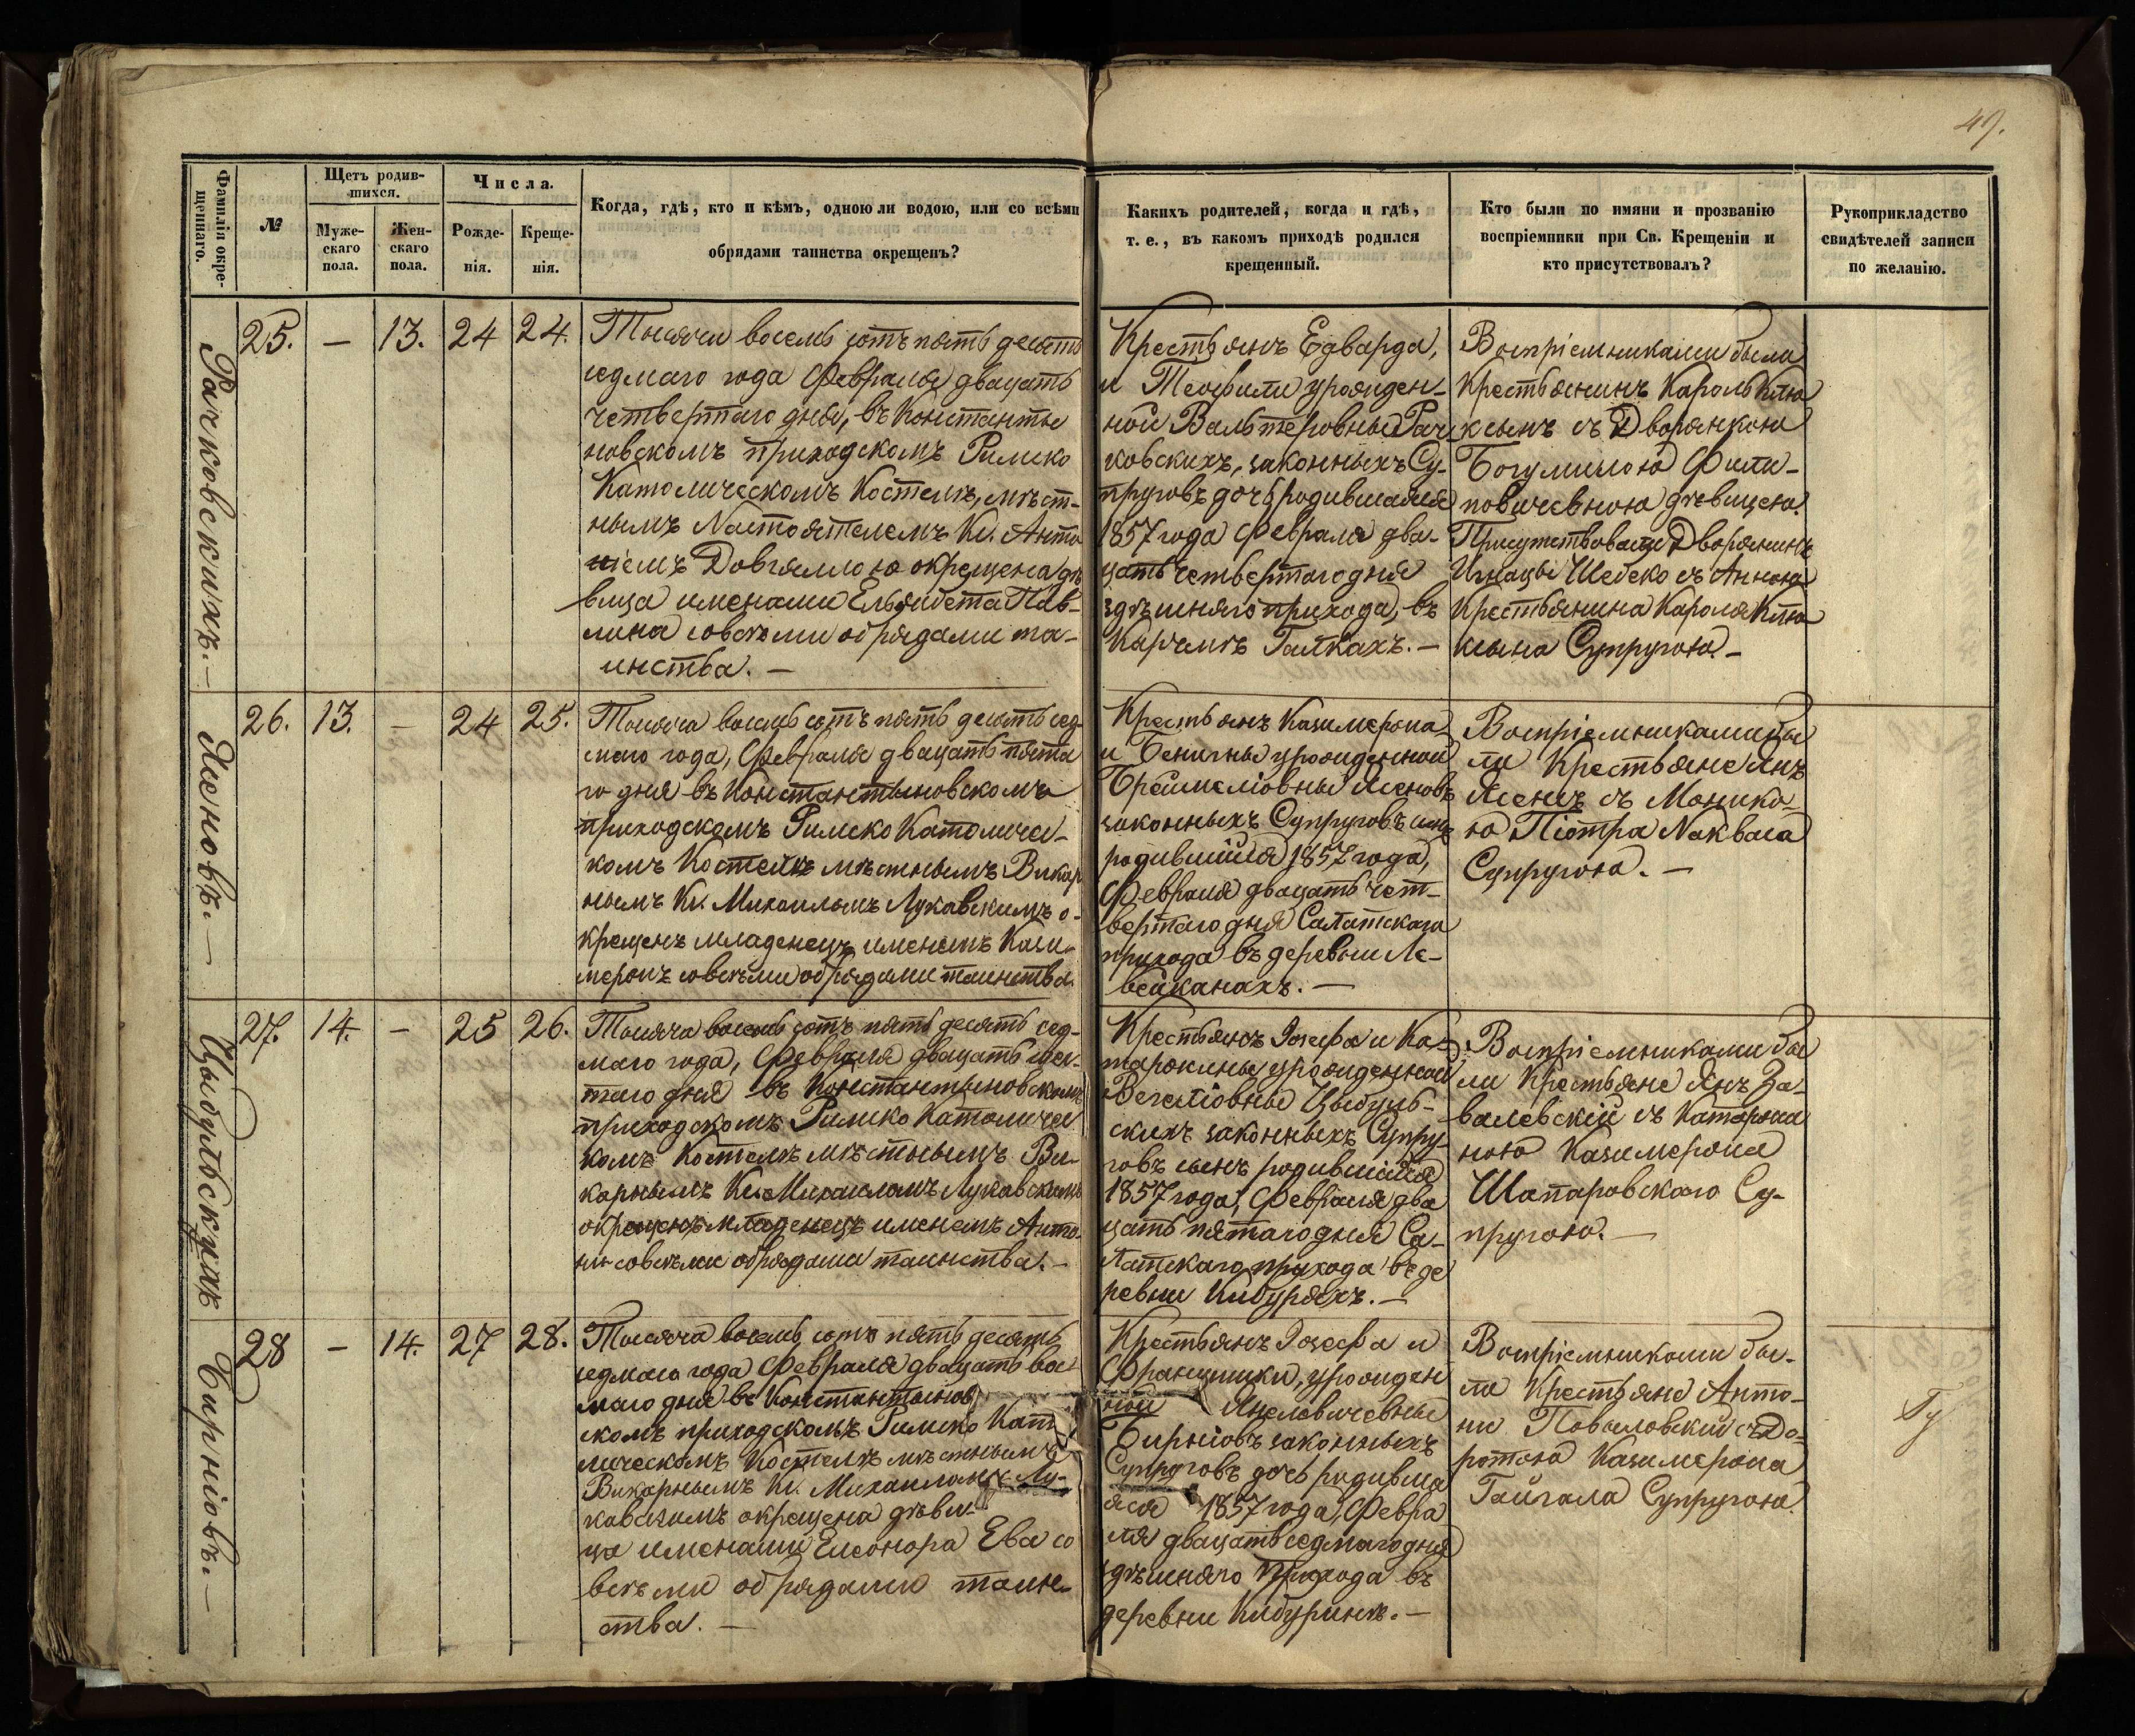 49.
Фамилія окре-
щеннаго.
№
Щетъ родив-
шихся.
Муже-
скаго
пола.
Жен-
скаго
пола.
Числа.
Рожде-
нія.
Креще-
нія.
Когда, гдѣ, кто и кѣмъ, одною ли водою, или со всѣми
обрядами таинства окрещенъ?
Какихъ родителей, когда и гдѣ,
т. е., въ какомъ приходѣ родился
крещенный.
Кто были по имяни и прозванію
воспріемники при Св. Крещеніи и
кто присутствовалъ?
Рукоприкладство
свидѣтелей записи
по желанію.
Рачковскихъ.—
25. — 13. 24 24.
Тысяча восемь сотъ пять десятъ
седмаго года Февраля двацать
четвертаго дня, въ Константы
новскомъ приходскомъ Римско
Католическомъ Костелѣ, мѣст-
нымъ Настоятелемъ Кс. Анто
ніемъ Довгялло окрещена дѣ
вица именами Ельжбета Пав-
лина совсѣми обрядами та-
инства. —
Крестьянъ Едварда,
и Теофили урожден-
ной Вальтеровны Рач
ковскихъ, законныхъ Су-
пруговъ дочь родившаяся
1857 года Февраля два-
цать четвертаго дня
здѣшняго прихода, въ
Карчмѣ Галкахъ. —
Воспріемниками были
Крестьянинъ Кароль Клю
ксынъ съ Дворянкою
Богумилою Фили-
повичевною дѣвицею.
Присутствовали Дворянинъ
Игнацы Шебеко съ Анною
Крестьянина Кароля Клю
ксына Супругою. —
Ясеновъ.—
26. 13. — 24 25.
Тысяча восемь сотъ пять десятъ сед-
маго года, Февраля двацать пята
го дня въ Константыновскомъ
приходскомъ Римско Католичес-
комъ Костелѣ мѣстнымъ Викар
нымъ Кс. Михаиломъ Лукавскимъ о-
крещенъ младенецъ именемъ Кази-
меръ совсѣми обрядами таинства.
Крестьянъ Казимера
и Бенигны урожденной
Ясеновъ
законныхъ Супруговъ сынъ
родившійся 1857 года,
Февраля двацать чет-
вертаго дня Салатскаго
прихода въ деревни Ле-
вейканахъ. —
Воспріемниками бы
ли Крестьяне Янъ
Ясенъ съ Моники-
ю Піотра Накваса
Супругою. —
Цыбульскихъ
27. 14. — 25 26.
Тысяча восемь сотъ пять десятъ сед-
маго года, Февраля двацать шес-
таго дня въ Константыновскомъ
приходскомъ Римско Католичес
комъ Костелѣ мѣстнымъ Ви-
карнымъ Кс. Михаиломъ Лукавскимъ
окрещенъ младенецъ именемъ Анто-
ни совсѣми обрядами таинства. —
Крестьянъ Іозефа и Ка-
таржины урожденной
Цыбуль-
скихъ законныхъ Супру-
говъ сынъ родившійся
1857 года, Февраля два
цать пятаго дня Са-
латскаго прихода въ де
ревни Кибуряхъ. —
Воспріемниками бы
ли Крестьяне Янъ За-
валевскій съ Катаржи
ною Казимера
Шапаровскаго Су-
пругою. —
Бирніовъ.—
28 — 14. 27 28.
Тысяча восемь сотъ пять десятъ
седмаго года Февраля двацать вос
маго дня въ Константынов
скомъ приходскомъ Римско Като
лическомъ Костелѣ мѣстнымъ
Викарнымъ Кс. Михаиломъ Лу-
кавскимъ окрещена дѣви-
ца именами Елеонора Ева со
всѣми обрядами таин-
ства. —
Крестьянъ Іозефа и
Францишки, урожден
ной Янелевичевны
Бирніовъ законныхъ
Супруговъ дочь родивша
яся 1857 года, Февра
ля двацать седмаго дня
здѣшняго прихода въ
деревни Кибуринѣ. —
Воспріемниками бы-
ли Крестьяне Анто-
ни Повиловскій съ До-
ротою Казимера
Гайгала Супругою.